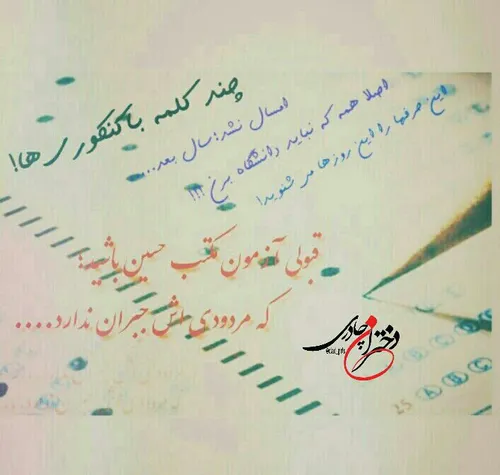 چند کلمه با کنکوری ها!
امسال نشد؛ سال بعد....
اصلا همه که نباید دانشگاه برن !!!
این حرفها را این روزها می شنوید!
قبولی آزمون مکتب حسین باشید؛
که مردودی اش جبران ندارد....
دختران چادری
25 A B C